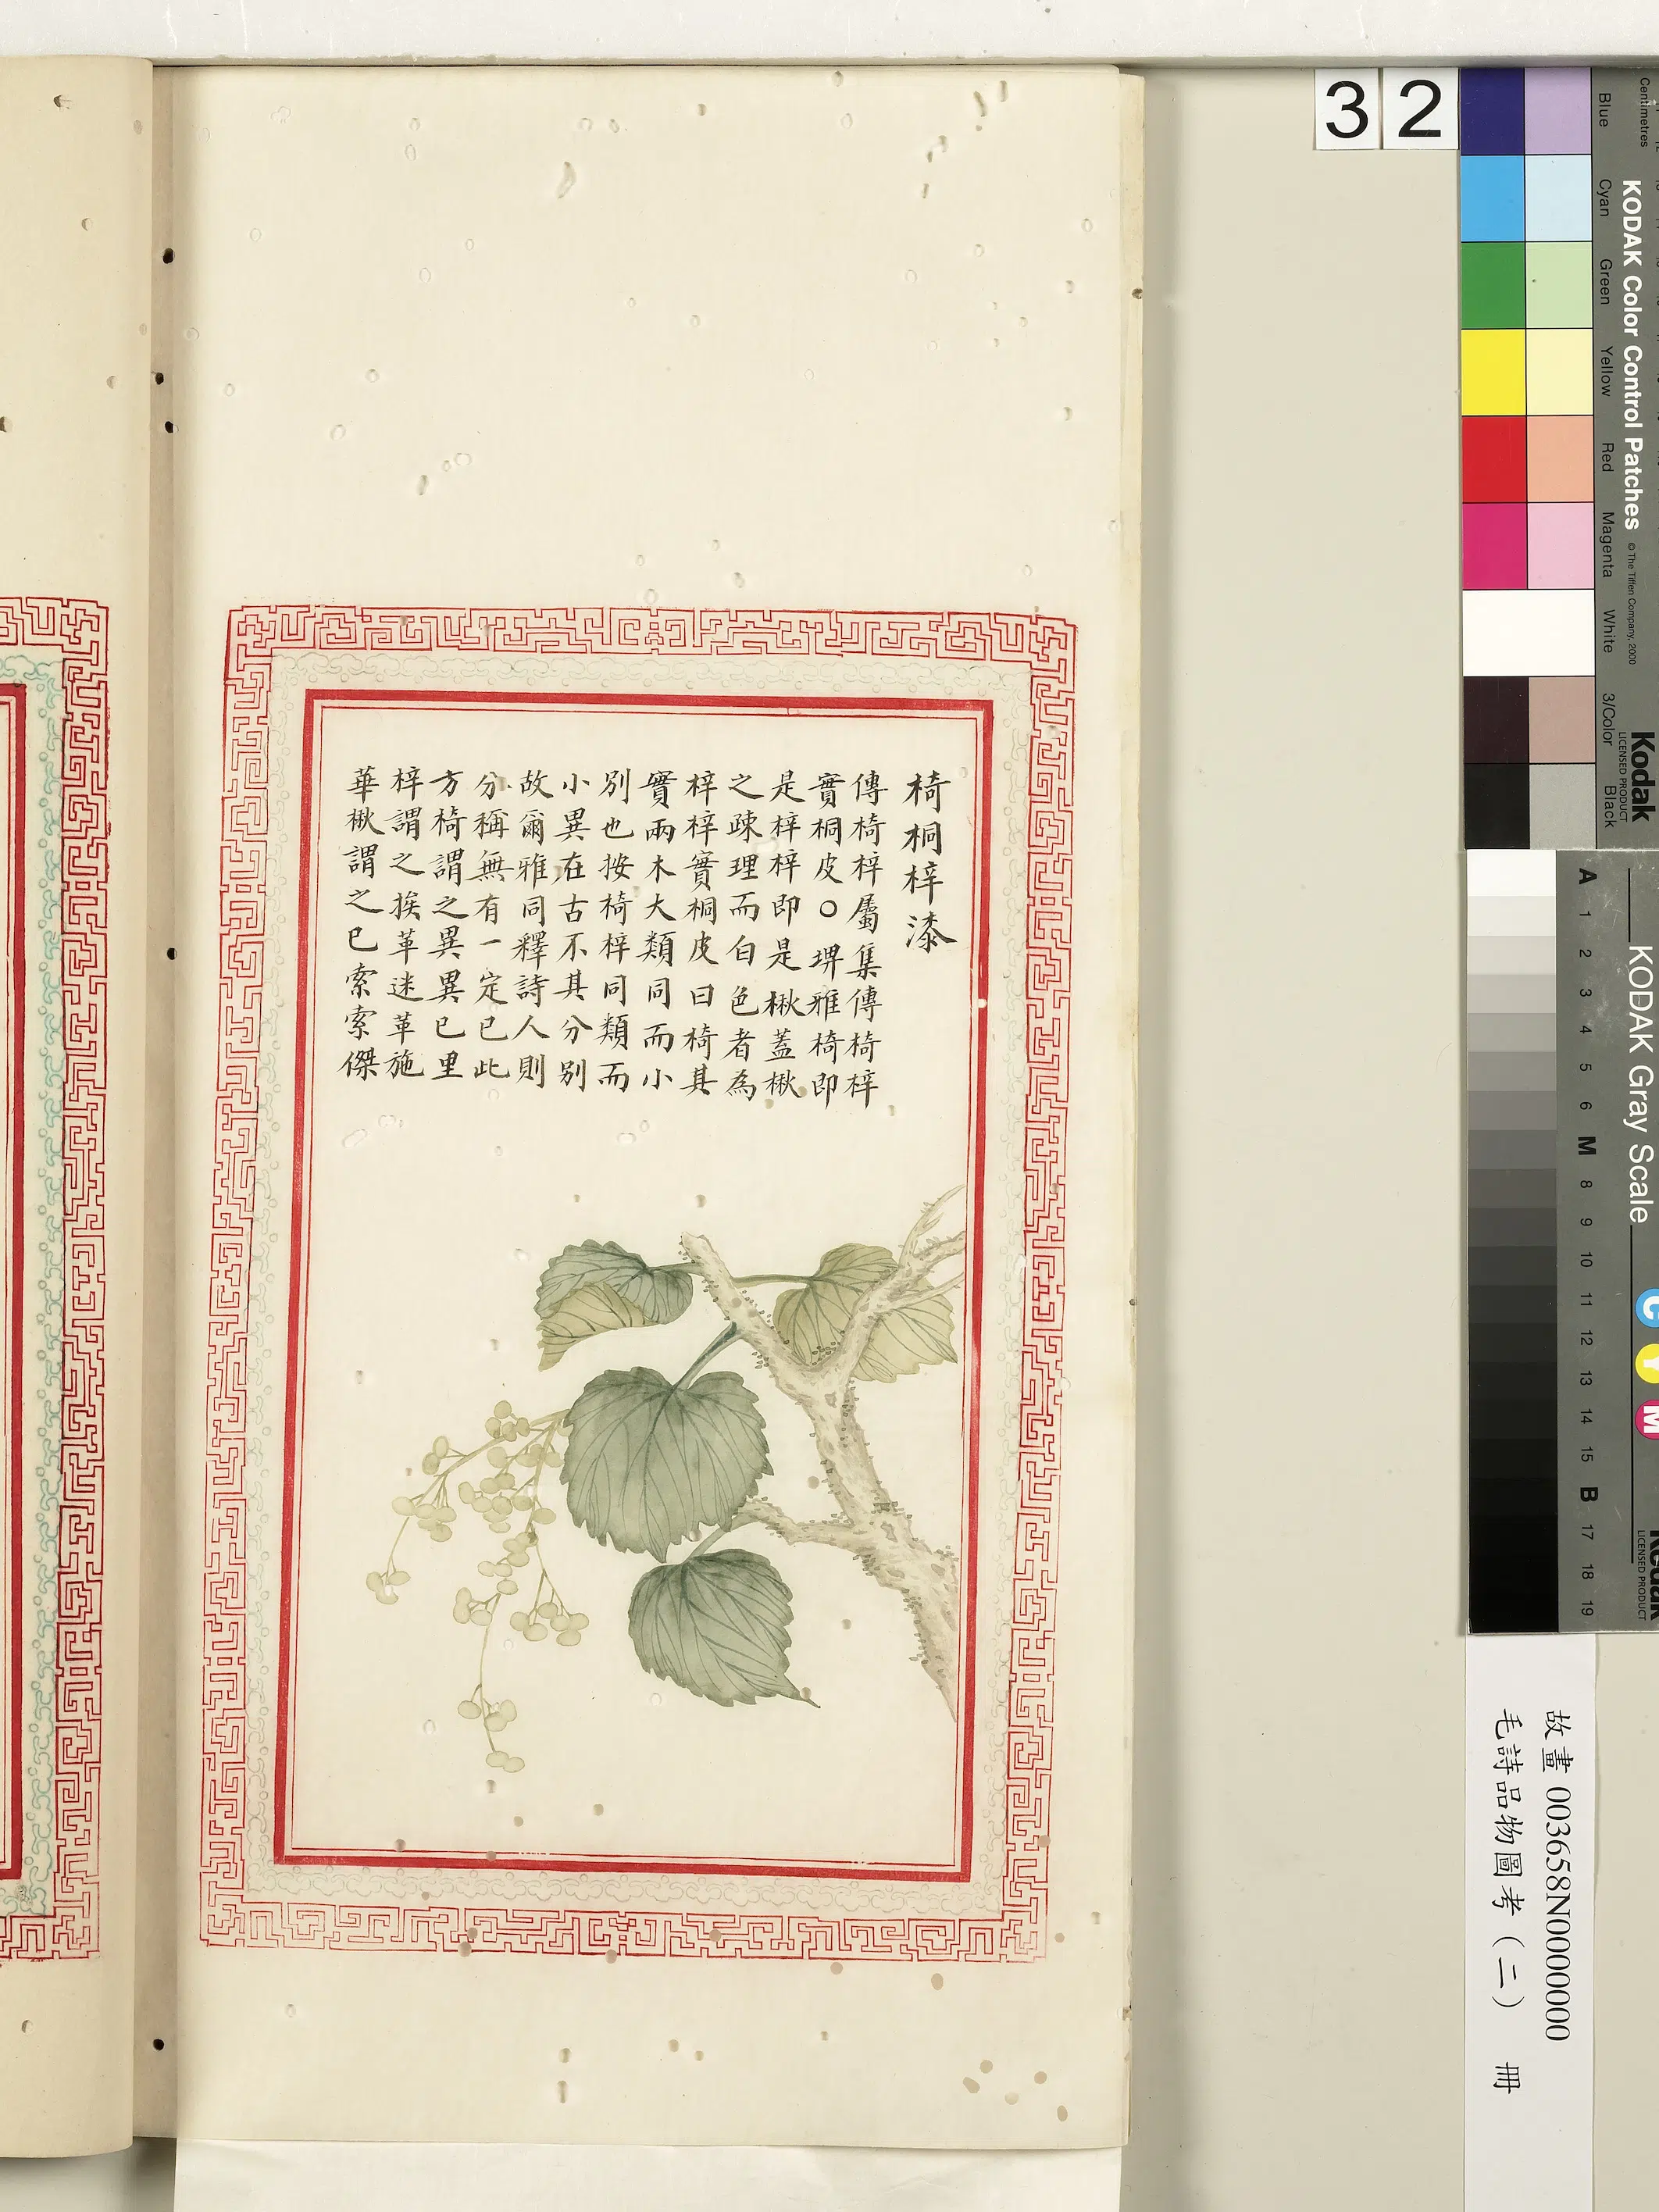 椅桐梓漆
傳椅梓屬集傳椅梓
實桐皮○埤雅椅即
是梓梓即是楸蓋楸
之疎理而白色者為
梓梓實桐皮曰椅其
實兩木大類同而小
別也按椅梓同類而
小異在古不其分別
故爾雅同釋詩人則
分稱無有一定已此
方椅謂之異異已里
梓謂之挨革迷革施
華楸謂之已索索傑
3 2
Centimetres
KODAK Color Control Patches
© The Tiffen Company, 2000
Kodak
LICENSED PRODUCT
Blue
Cyan
Green
Yellow
Red
Magenta
White
3/Color
Black
KODAK Gray Scale
A 1 2 3 4 5 6 M 8 9 10 11 12 13 14 15 B 17 18 19
C Y M
Kodak
LICENSED PRODUCT
故畫 003658N000000000
毛詩品物圖考（二） 冊